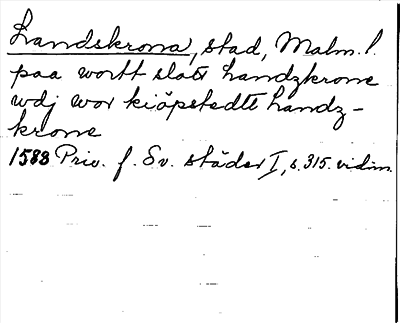 Landskrona, stad, Malm. l.
paa wortt slott Landzkrone
wdj wor kiöpstedtt Landz-
krone
1583 Priv. f. Sv. städer I, s. 315. vidim.